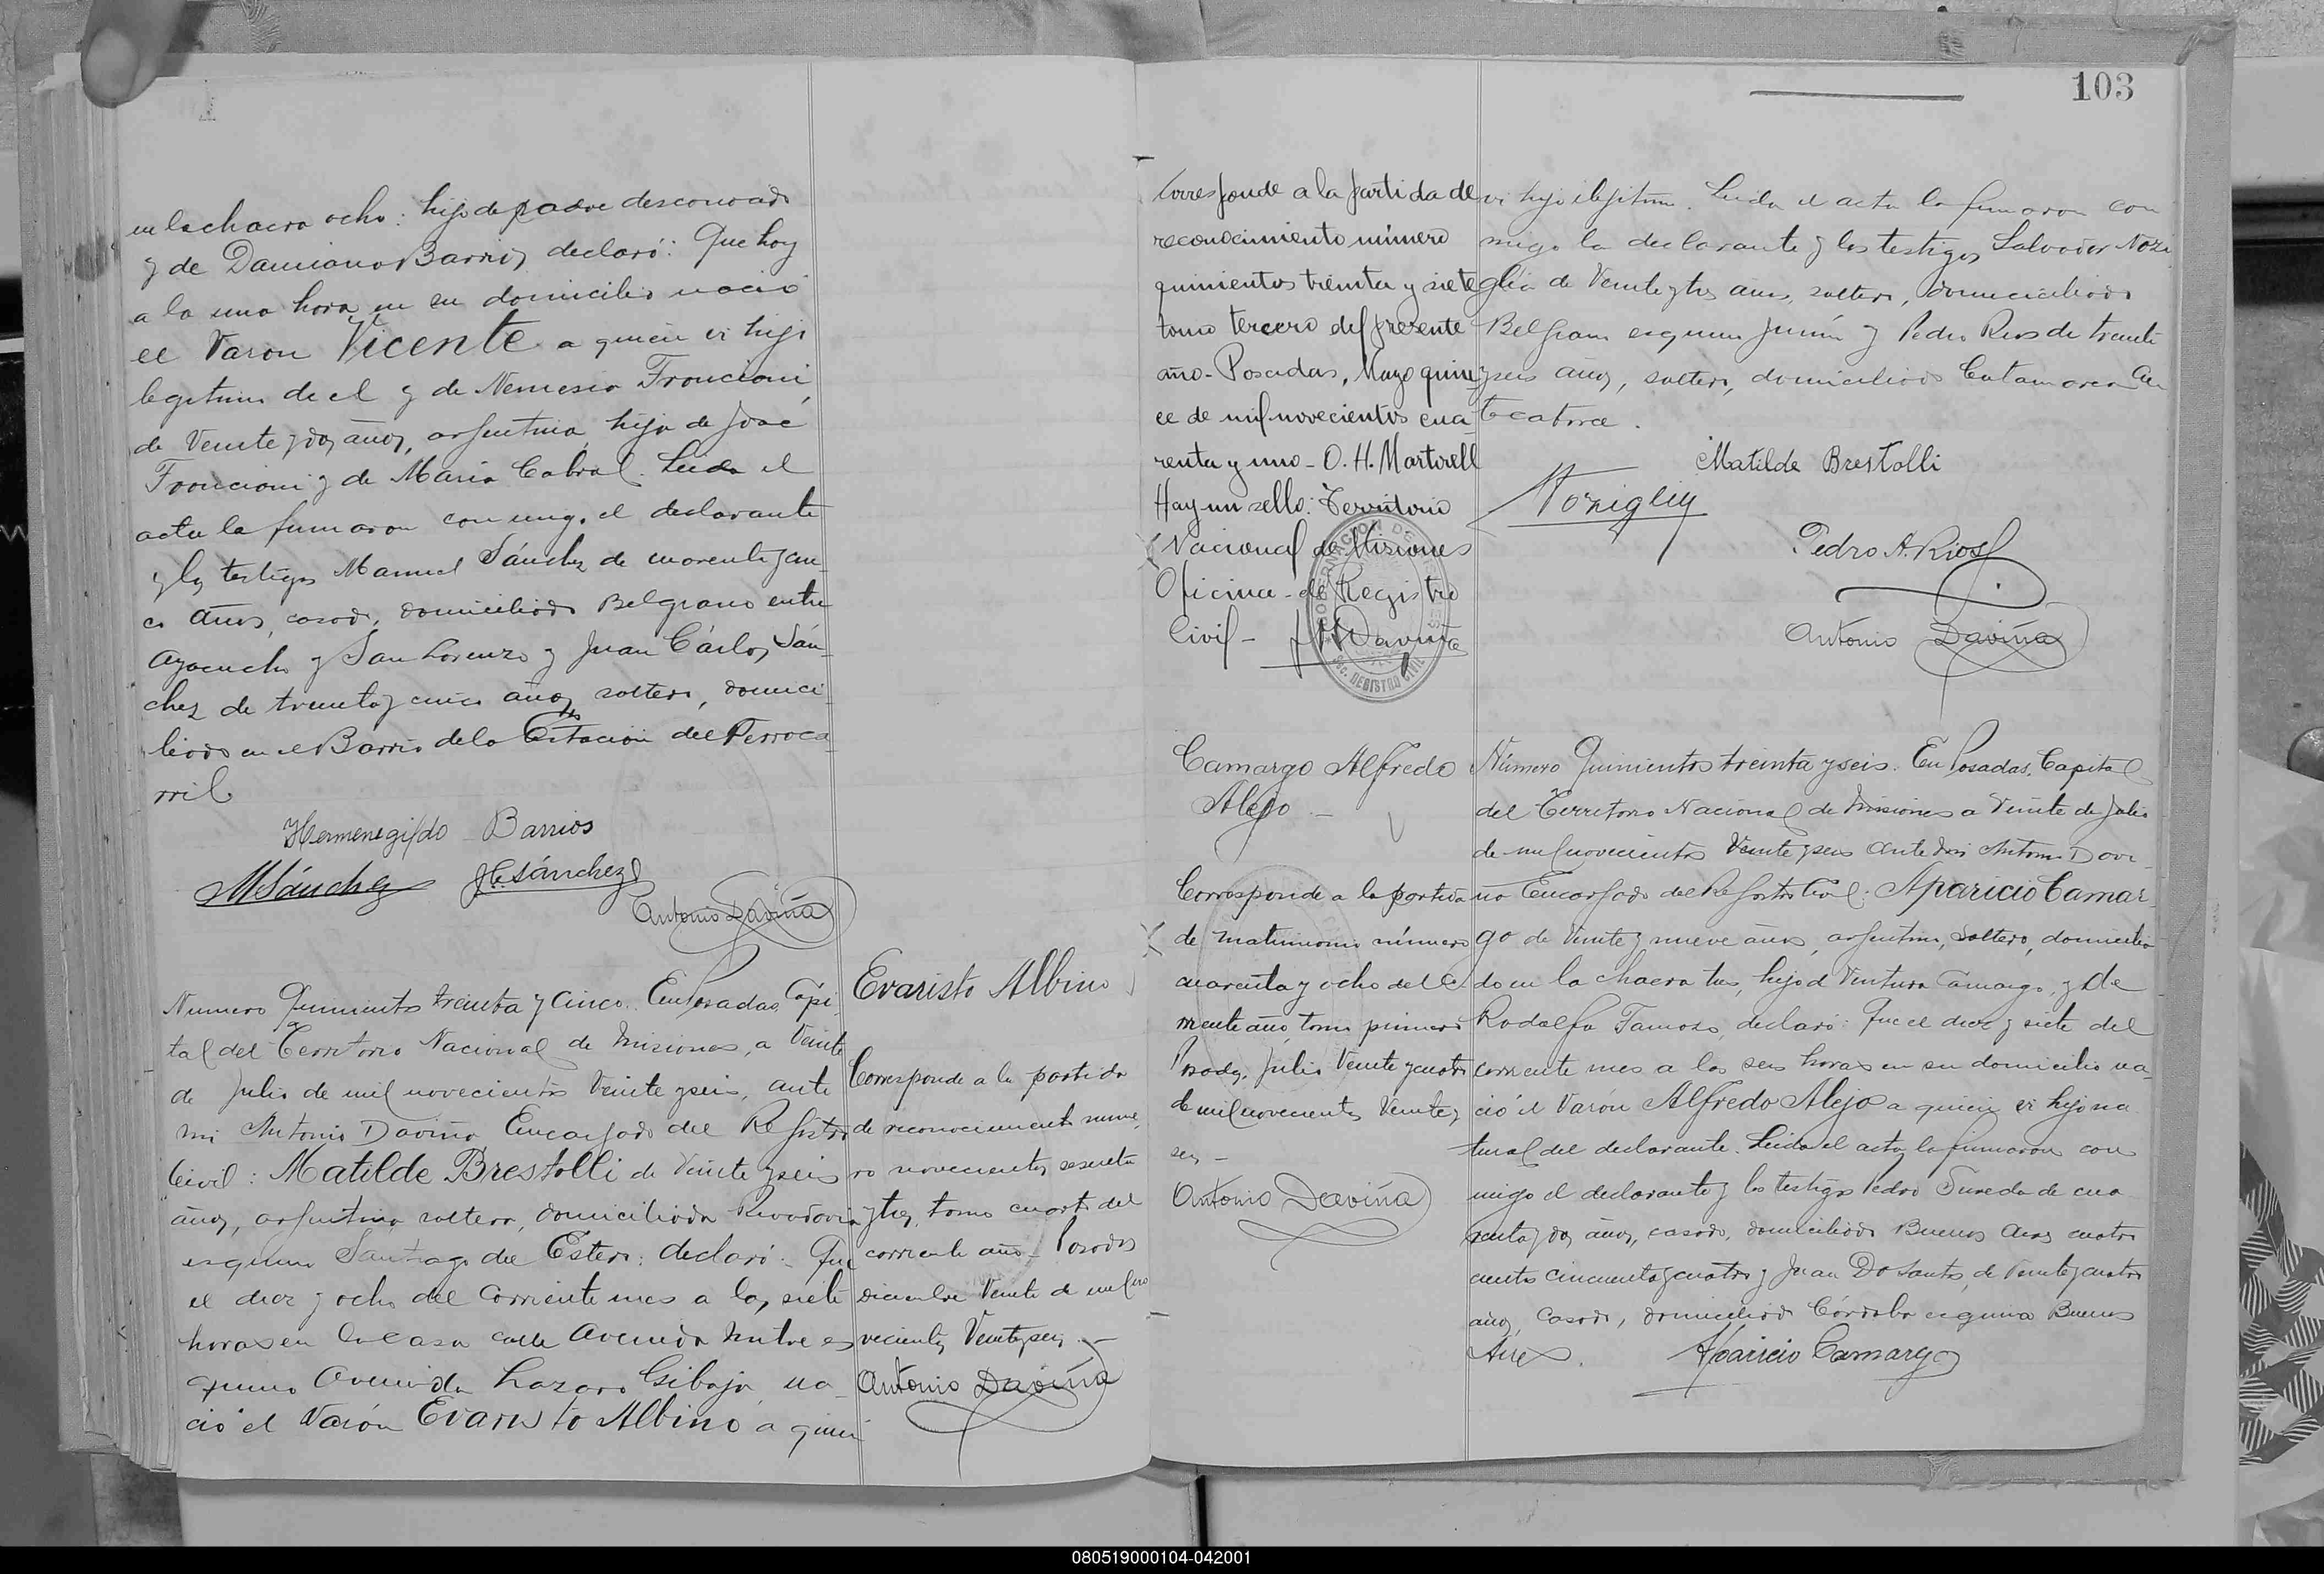 en la chacra ocho: hijo de padre desconocido
y de Damiana Barrios declaró: Que hoy
a la una hora en su domicilio nació
el Varon Vicente a quien vi hijo
legitimo de el y de Nemesia Troncioni,
de Veinte y dos años, argentina, hija de José
Troncioni y de Maria Cabral. Leida el
acta la firmaron conmigo el declarante
y los testigos Manuel Sánchez de cuarenta y cin-
co años, casado, domiciliado Belgrano entre
Ayacucho y San Lorenzo y Juan Cárlos Sán-
chez de treinta y cinco años soltero, domici-
liado en el Barrio de la Estacion del Ferroca-
rril
Hermenegildo Barrios
MSánchez JCSánchez
Antonio Daviña
Numero Quinientos treinta y Cinco. En Posadas, Capi-
tal del Territorio Nacional de Misiones, a Veinte
de Julio de mil novecientos Veinte y seis, ante
mi Antonio Daviña Encargado del Registro
Civil: Matilde Brestolli de Veinte y seis
años, argentina, soltera, domiciliada Rivadavia
esquina Santiago del Estero: declaró: Que
el diez y ocho del Corriente mes a las siete
horas en la casa calle Avenida Mitre es
quina Avenida Lazaro Gibaja na-
ció el Varón Evaristo Albino a quien
Evaristo Albino
Corresponde a la partida
de reconocimiento nume-
ro novecientos sesenta
y tres, tomo cuarto del
corriente año - Posadas
diciembre Veinte de mil no
vecientos Veinte y seis. -
Antonio Daviña
103
Corresponde a la partida de
reconocimiento número
quinientos treinta y siete
tomo tercero del presente
año - Posadas, Mayo quin
ce de mil novecientos cua-
renta y uno - O. H. Martirell
Hay un sello: Territorio
Nacional de Misiones
Oficina - de Registro
Civil - Daviña
REGISTRO CIVIL
vi hijo ilegitimo. Leida el acta la firmaron con
migo la declarante y los testigos Salvador Nozi
glia de Veinte y tres años, soltero, domiciliado
Belgrano esquina Junin y Pedro Rios de treinta
y seis años, soltero, domiciliado Catamarca Cien
to catorce.
Matilde Brestolli
Noziglia
Pedro A. Rios
Antonio Daviña
Camargo Alfredo
Alejo -
Corresponde a la partida
de matrimonio número
cuarenta y ocho del co
rriente año, tomo primero
Posadas, Julio Veinte y cuatro
de mil novecientos Veinte y
seis -
Antonio Daviña
Número Quinientos treinta y seis. En Posadas, Capital
del Territorio Nacional de Misiones a Veinte de Julio
de mil novecientos Veinte y seis ante mi Antonio Davi-
ña Encargado del Registro Civil: Aparicio Camar-
go de Veinte y nueve años, argentino, soltero, domicilia-
do en la chacra tres, hijo de Ventura Camargo, y de
Rodolfa Famoso, declaró: Que el diez y siete del
corriente mes a las seis horas en su domicilio na-
ció el Varón Alfredo Alejo a quien vi hijo na
tural del declarante. Leida el acta, la firmaron con
migo el declarante y los testigos Pedro Sureda de cua
renta y dos años, casado, domiciliado Buenos Aires cuatro
cientos cincuenta y cuatro y Juan Do Santos, de Veinte y cuatro
años, casado, domiciliado Córdoba esquina Buenos
Aires. Aparicio Camargo
080519000104-042001